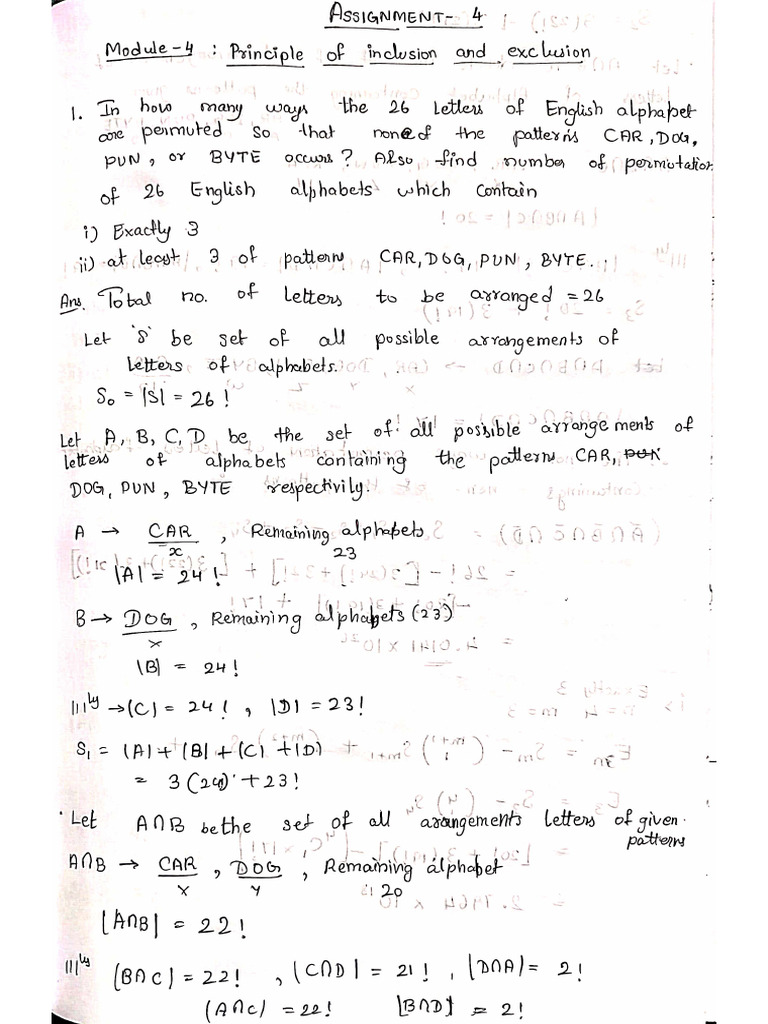 ASSIGNMENT- 4
Module-4 : Principle of inclusion and exclusion
1. In how many ways the 26 letters of English alphabet
are permuted so that none of the patterns CAR, DOG,
PUN, or BYTE occurs? Also find number of permutation
of 26 English alphabets which contain
i) Exactly 3
ii) at least 3 of pattern CAR, DOG, PUN, BYTE.
Ans. Total no. of letters to be arranged = 26
Let 'S' be set of all possible arrangements of
letters of alphabets.
S₀ = |S| = 26!
Let A, B, C, D be the set of all possible arrangements of
letters of alphabets containing the pattern CAR, PUN
DOG, PUN, BYTE respectivily.
A → CAR , Remaining alphabets
x 23
|A| = 24!
B → DOG , Remaining alphabets (23)
x
|B| = 24!
|||ly → |C| = 24! , |D| = 23!
S₁ = |A| + |B| + |C| + |D|
= 3(24!) + 23!
Let A∩B be the set of all arrangements letters of given
patterns
A∩B → CAR , DOG , Remaining alphabet
x y 20
|A∩B| = 22!
|||ly |B∩C| = 22! , |C∩D| = 21! , |D∩A| = 2!
|A∩C| = 22! |B∩D| = 2!